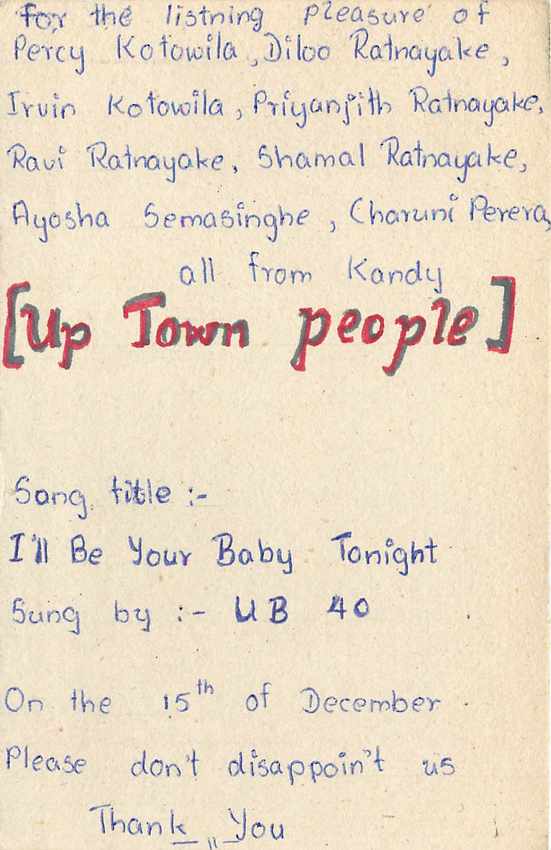 for the listning pleasure of
Percy Kotowila, Diloo Ratnayake,
Irvin Kotowila, Priyanjith Ratnayake,
Ravi Ratnayake, Shamal Ratnayake,
Ayosha Semasinghe, Charuni Perera,
all from Kandy
[Up Town people]
Song title :-
I'll Be Your Baby Tonight
Sung by :- UB 40
On the 15th of December
Please don't disappoin't us
Thank you